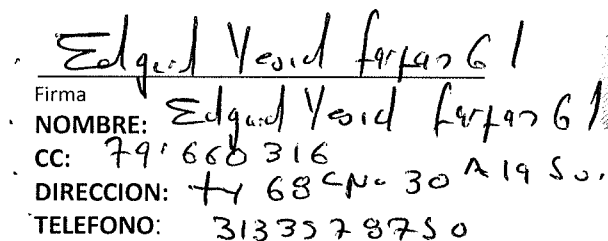 Edgard Yesid Farfan G
Firma
NOMBRE: Edgard Yesid Farfan G
CC: 79'660316
DIRECCION: 68 C No 30 A 19 Su.
TELEFONO: 3133578750